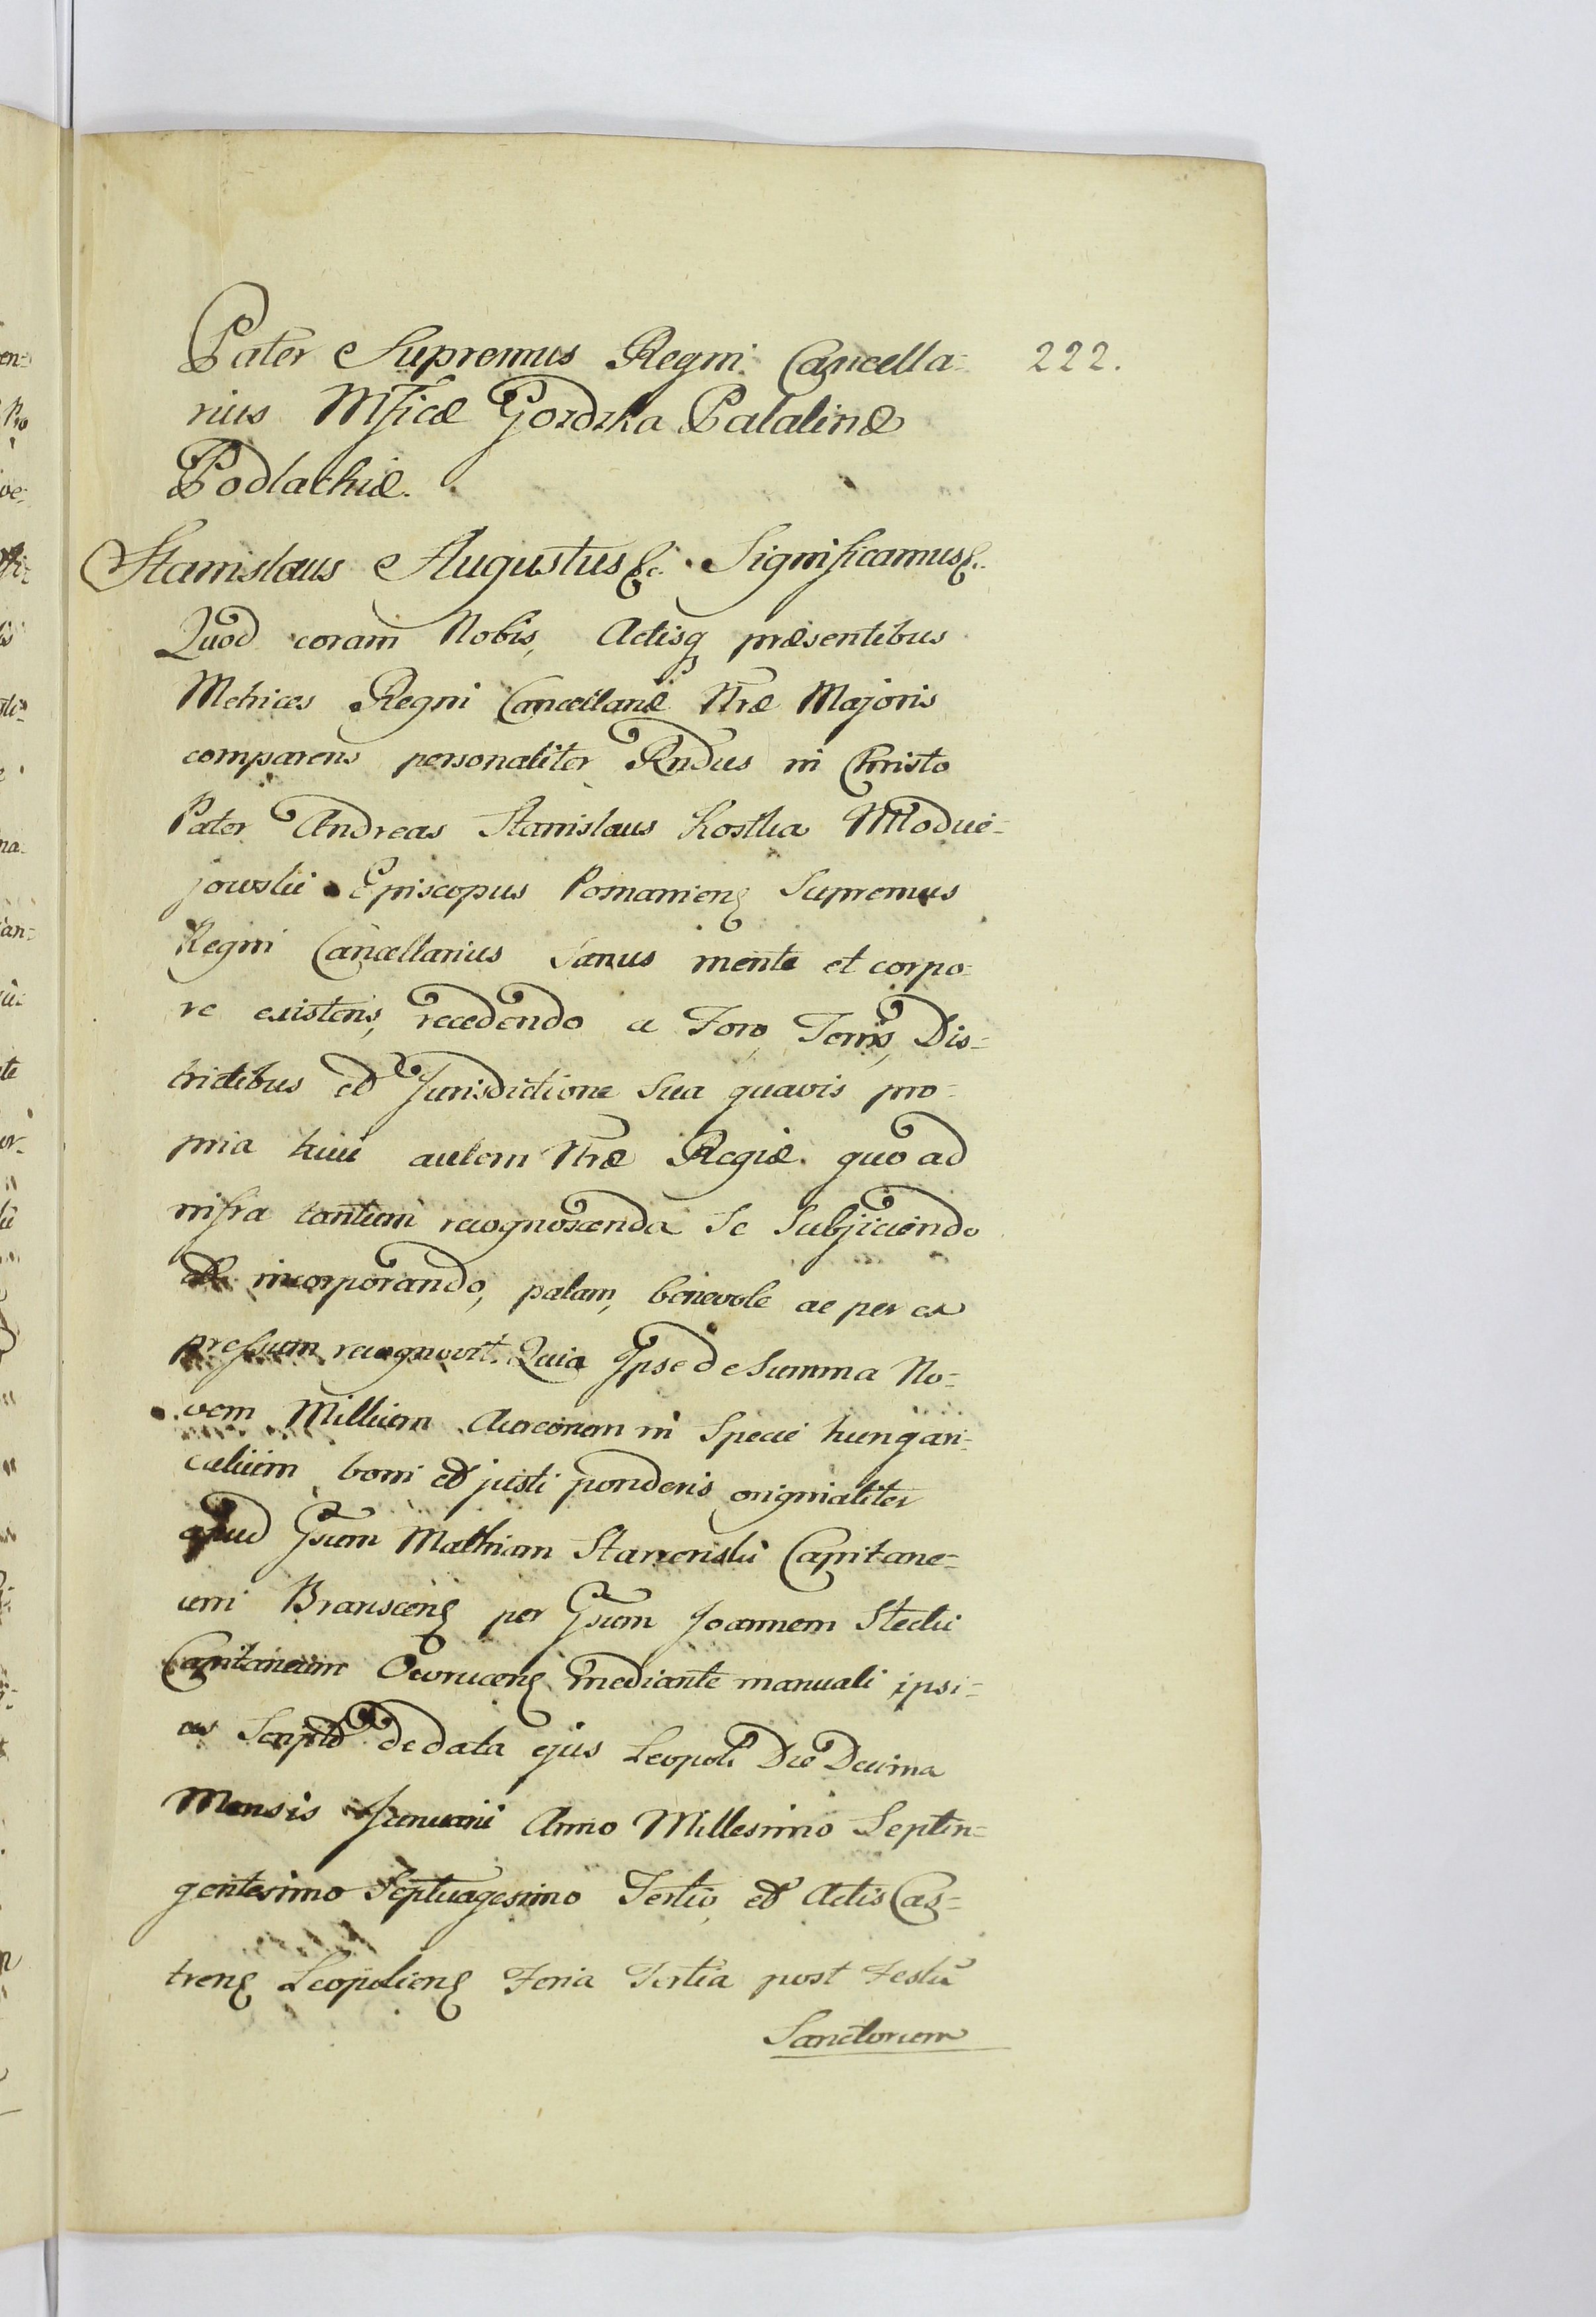 Pater Supremus Regni Cancella= 222.
rius Mficæ Gozdzka Palatinæ
Podlachiæ.
Stanislaus Augustus &c. Significamus &c.
Quod coram Nobis, Actisq præsentibus
Metrices Regni Cancellariæ Nræ Majoris
comparens personaliter Rndus in Christo
Pater Andreas Stanislaus Kostka Młodzie=
jowski Episcopus Posnanien Supremus
Regni Cancellarius Sanus mente et corpo=
re existens, recedendo a Foro, Terris, Dis=
trictibus et Jurisdictione Sua quavis pro=
pria huic autem Nræ Regiæ quo ad
infra tantum recognoscenda Se Subjiciendo
et incorporando, palam, benevole ac per ex
pressum recognovit. Quia Ipse de Summa No=
vem Millium Aureorum in Specie hungari=
calium boni et justi ponderis originaliter
apud Gsum Mathiam Starzenski Capitane=
um Branscen per Gsum Joannem Stecki
Capitaneum Owrucen mediante manuali ipsi=
us Scripto de data ejus Leopoli Die Decima
Mensis Januarii Anno Millesimo Septin=
gentesimo Septuagesimo Tertio, et Actis Cas=
tren Leopolien Feria Tertia post Festũ
Sanctorum